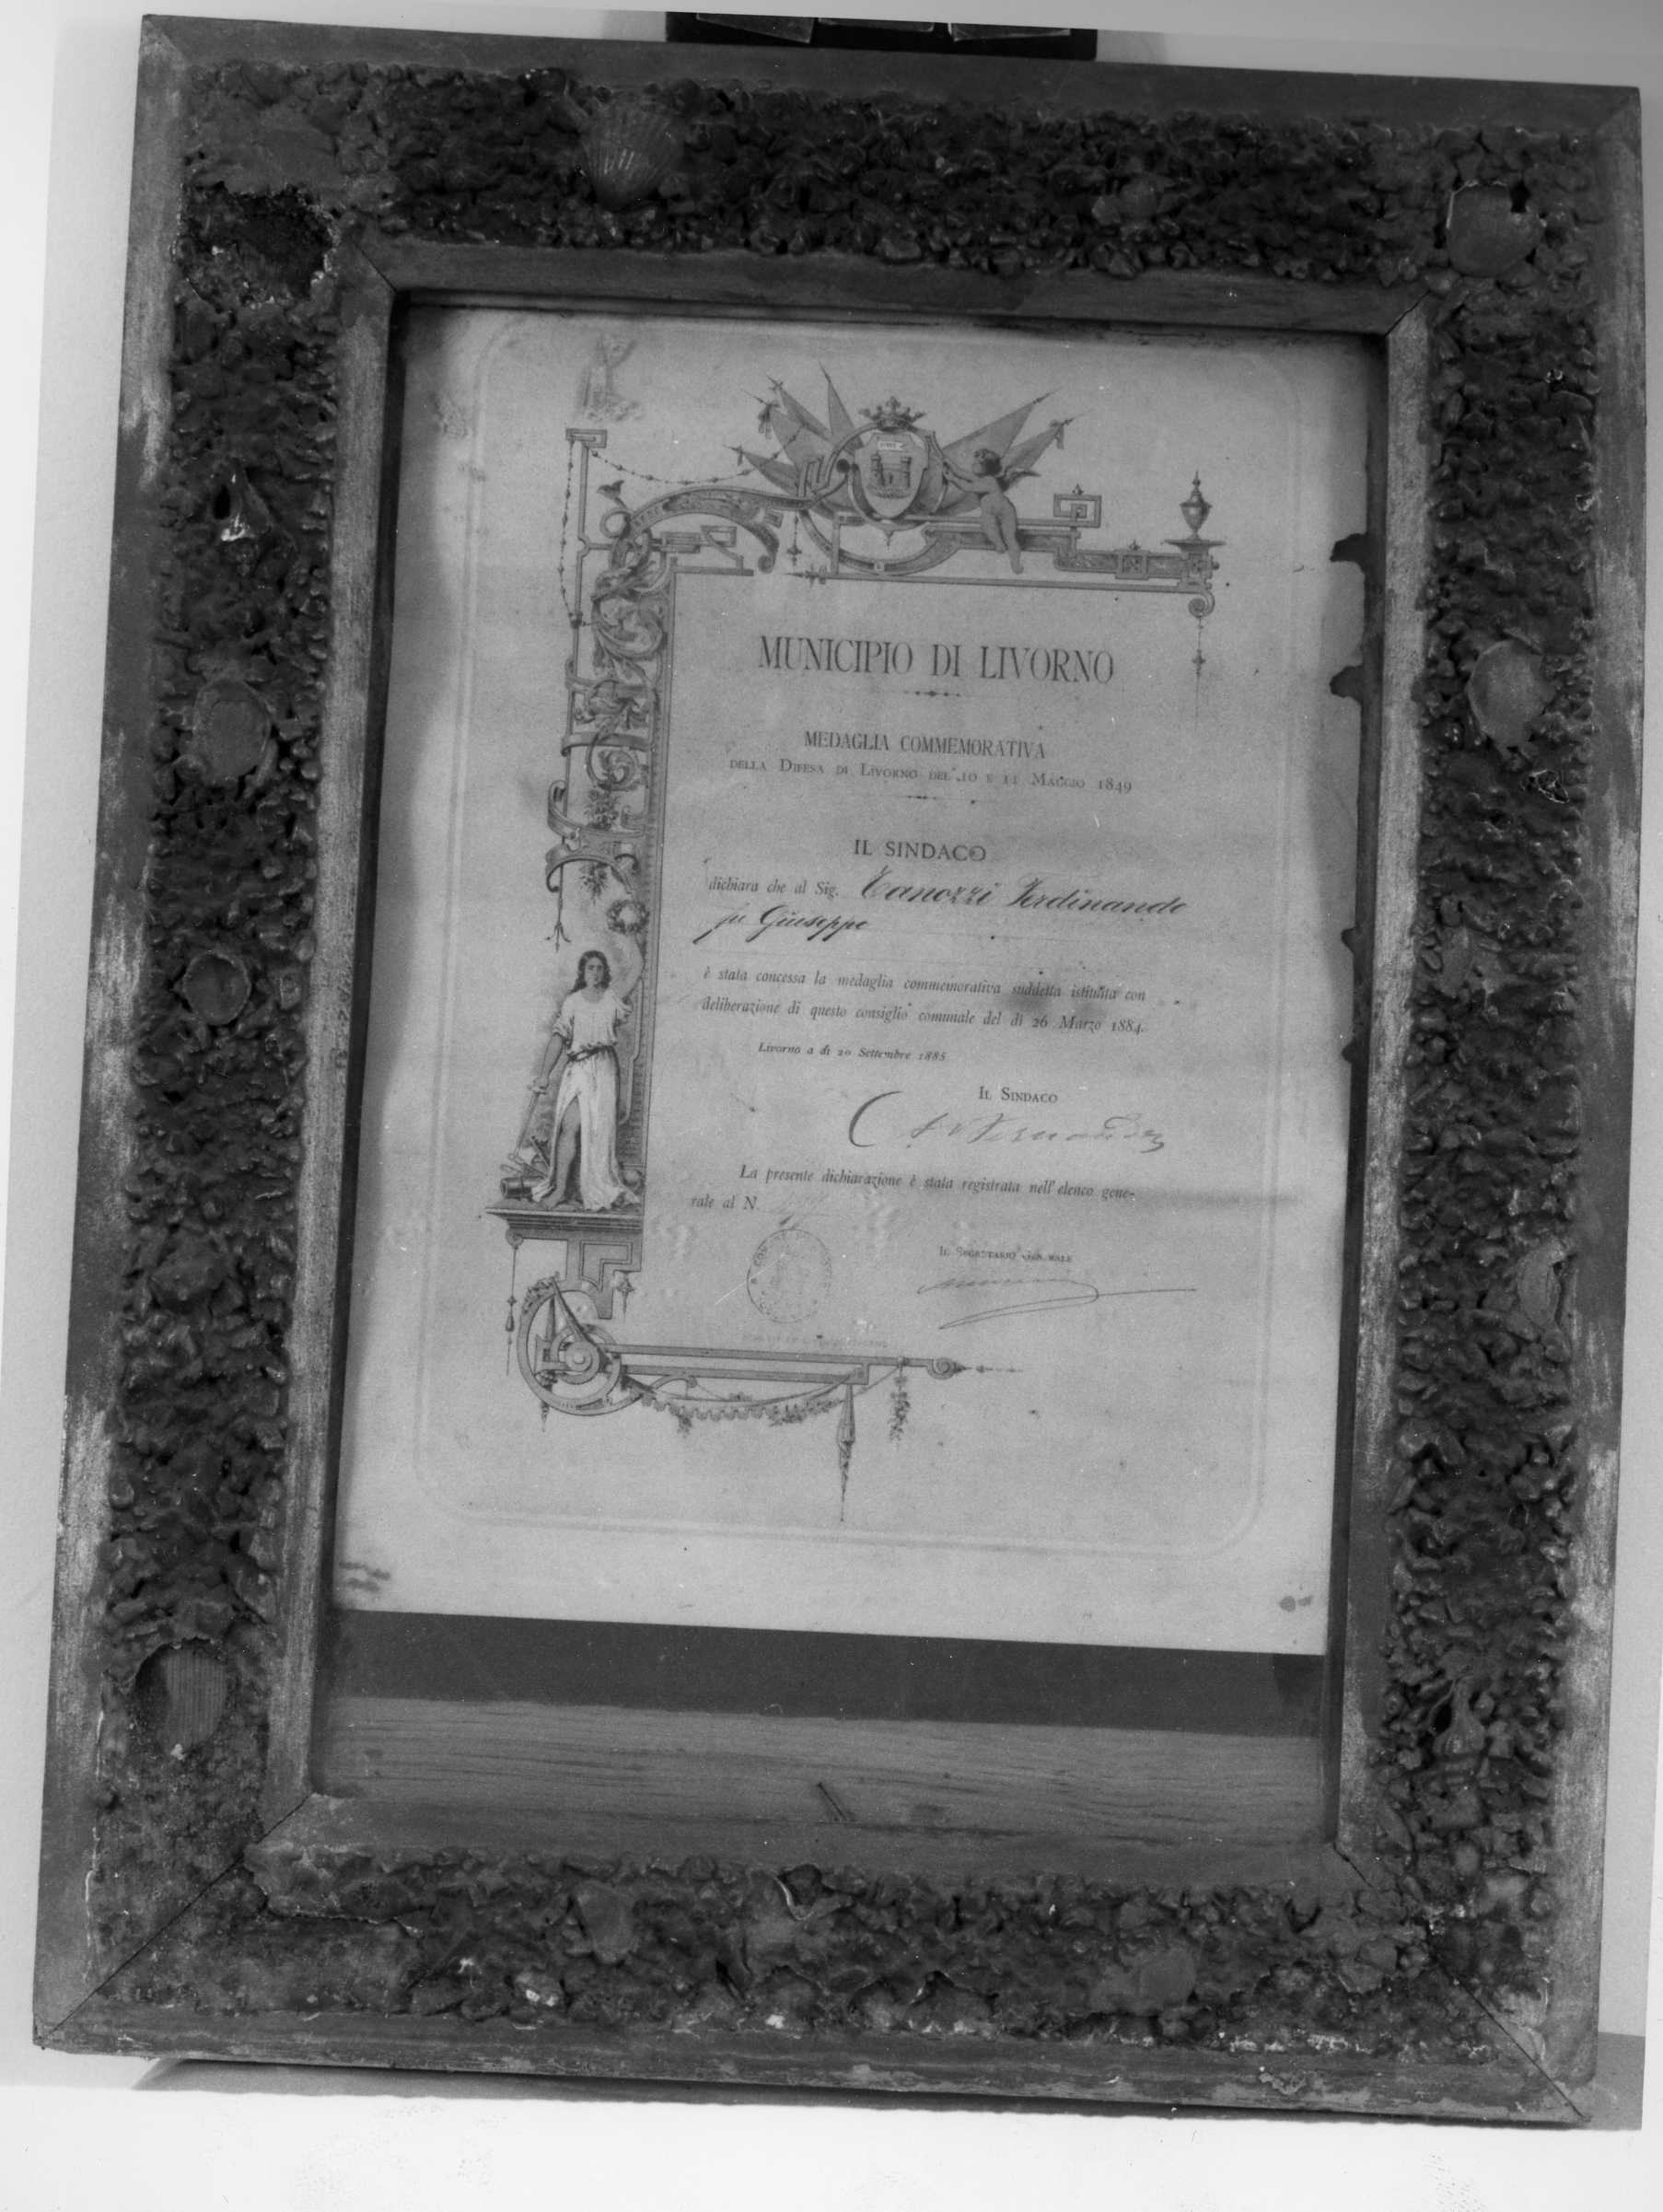 MUNICIPIO DI LIVORNO
MEDAGLIA COMMEMORATIVA
DELLA DIFESA DI LIVORNO DEL 10 E 11 MAGGIO 1849
IL SINDACO
dichiara che al Sig. Tanozzi Ferdinando
fu Giuseppe
è stata concessa la medaglia commemorativa suddetta istituita con
deliberazione di questo consiglio comunale del dì 26 Marzo 1884.
Livorno a dì 20 Settembre 1885
IL SINDACO
La presente dichiarazione è stata registrata nell'elenco gene-
rale al N.
IL SEGRETARIO GENERALE